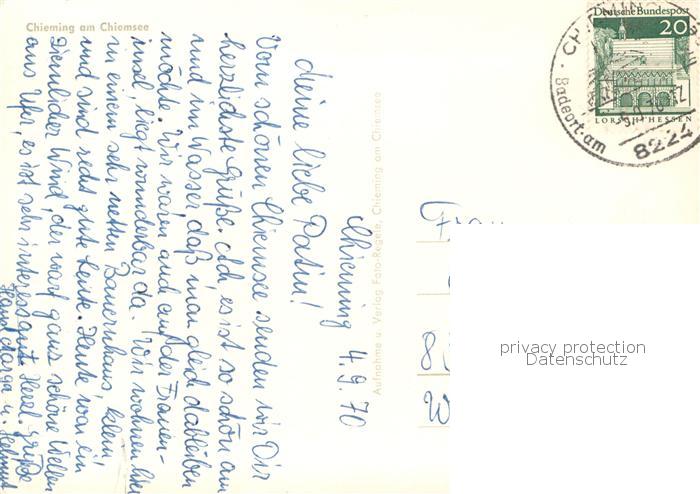 Chieming am Chiemsee
Chieming 4.9.70
Meine liebe Patin!
Vom schönen Chiemsee senden wir Dir
herzlichste Grüße. Ach es ist so schön am
und im Wasser, daß man gleich dableiben
möchte. Wir waren auch auf der Frauen-
insel, liegt wunderbar da. Wir wohnen hier
in einem sehr netten Bauernhaus, klein,
und sind recht gute Leute. Heute war ein
ziemlicher Wind, der warf ganz schöne Wellen
ans Ufer, es ist sehr interessant. Herzl. Grüße
Hans, Marga u. Helmut
Aufnahme u. Verlag Foto-Regele, Chieming am Chiemsee
Deutsche Bundespost
20
LORSCH/HESSEN
Badeort am
8224
Frau
8
W
privacy protection
Datenschutz